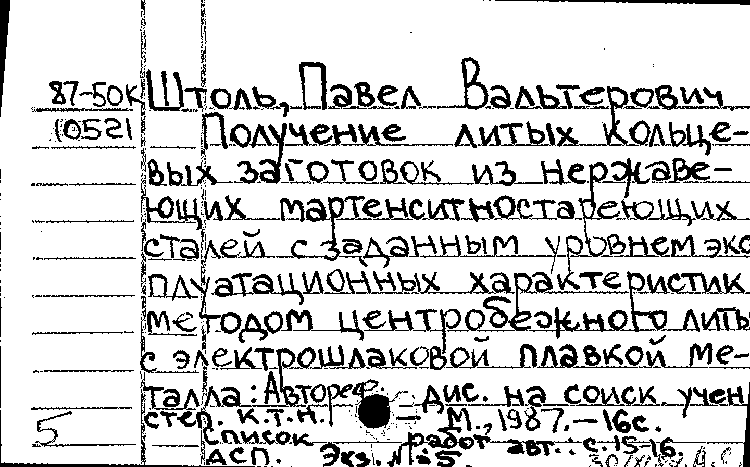 87-50К Штоль, Павел Вальтерович
10521 Получение литых кольце-
вых заготовок из нержаве-
ющих мартенситностареющих
сталей с заданным уровнем экс
плуатационных характеристик
методом центробежного лить
с электрошлаковой плавкой ме-
талла: Автореф. дис. на соиск. учен
степ. к.т.н. – М., 1987.–16с.
5 Список работ авт.: с.15-16
АСП. Экз. №:5.